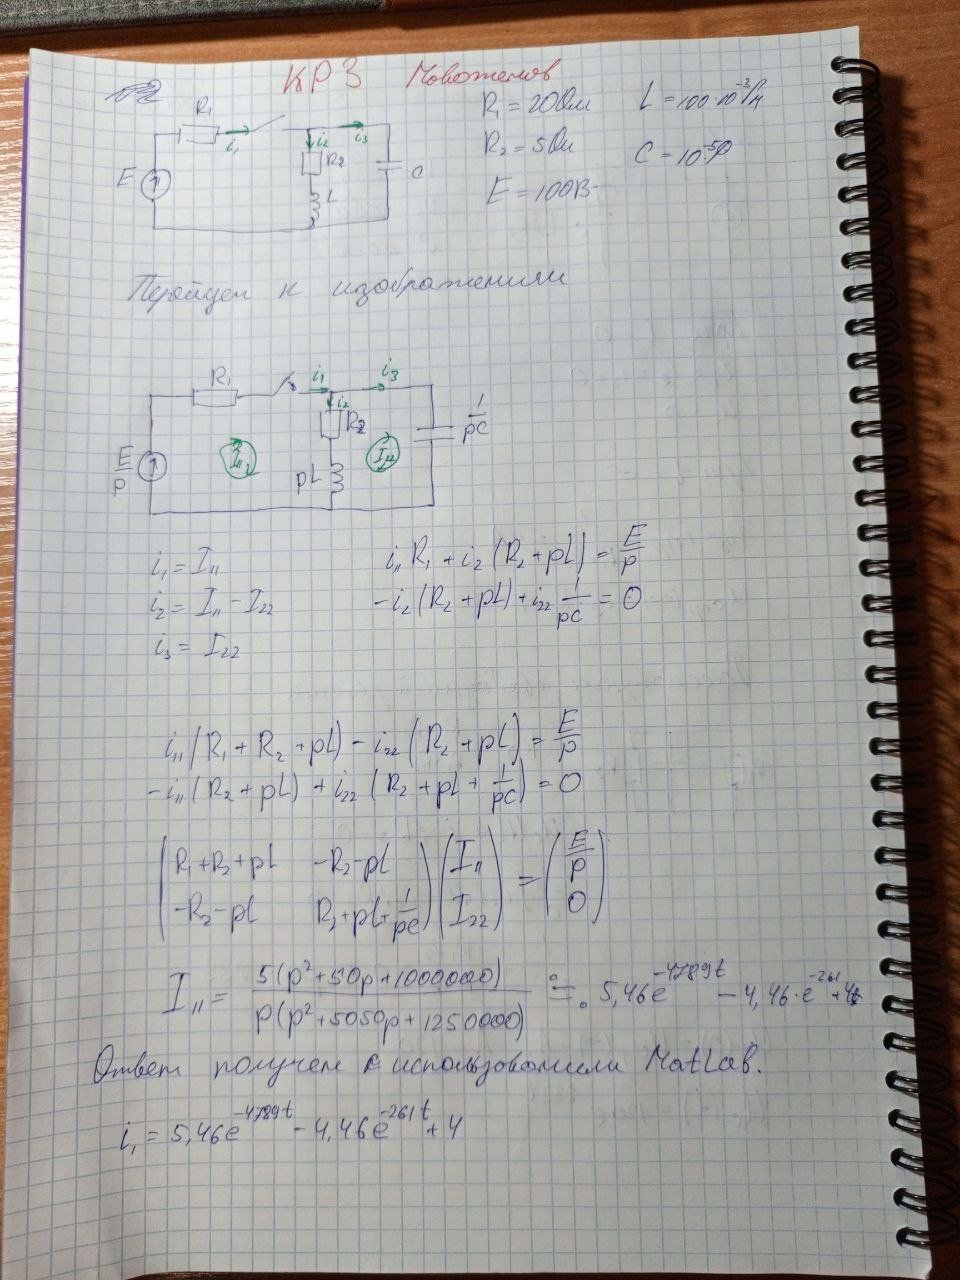 КР 3 Новоженов
R₁ = 20 Ом L = 100·10⁻³ Гн
R₂ = 5 Ом C = 10⁻⁵ Ф
E = 100 В
R₁
i₁ i₂ i₃
E R₂ C
L
Перейдем к изображениям
R₁ i₁ i₃
i₂ R₂ 1/pC
E/p I₁₁ I₂₂
pL
i₁ = I₁₁ i₁₁R₁ + i₂(R₂ + pL) = E/p
i₂ = I₁₁ - I₂₂ -i₂(R₂ + pL) + i₂₂ 1/pC = 0
i₃ = I₂₂
i₁₁(R₁ + R₂ + pL) - i₂₂(R₂ + pL) = E/p
-i₁₁(R₂ + pL) + i₂₂(R₂ + pL + 1/pC) = 0
(R₁+R₂+pL -R₂-pL) (I₁₁) = (E/p)
(-R₂-pL R₂+pL+1/pC) (I₂₂) (0)
I₁₁ = 5(p²+50p+1000000) / p(p²+5050p+1250000) ≓ 5,46e^(-4789t) - 4,46·e^(-261t) + 4
Ответ получен с использованием MatLab.
i₁ = 5,46e^(-4789t) - 4,46e^(-261t) + 4